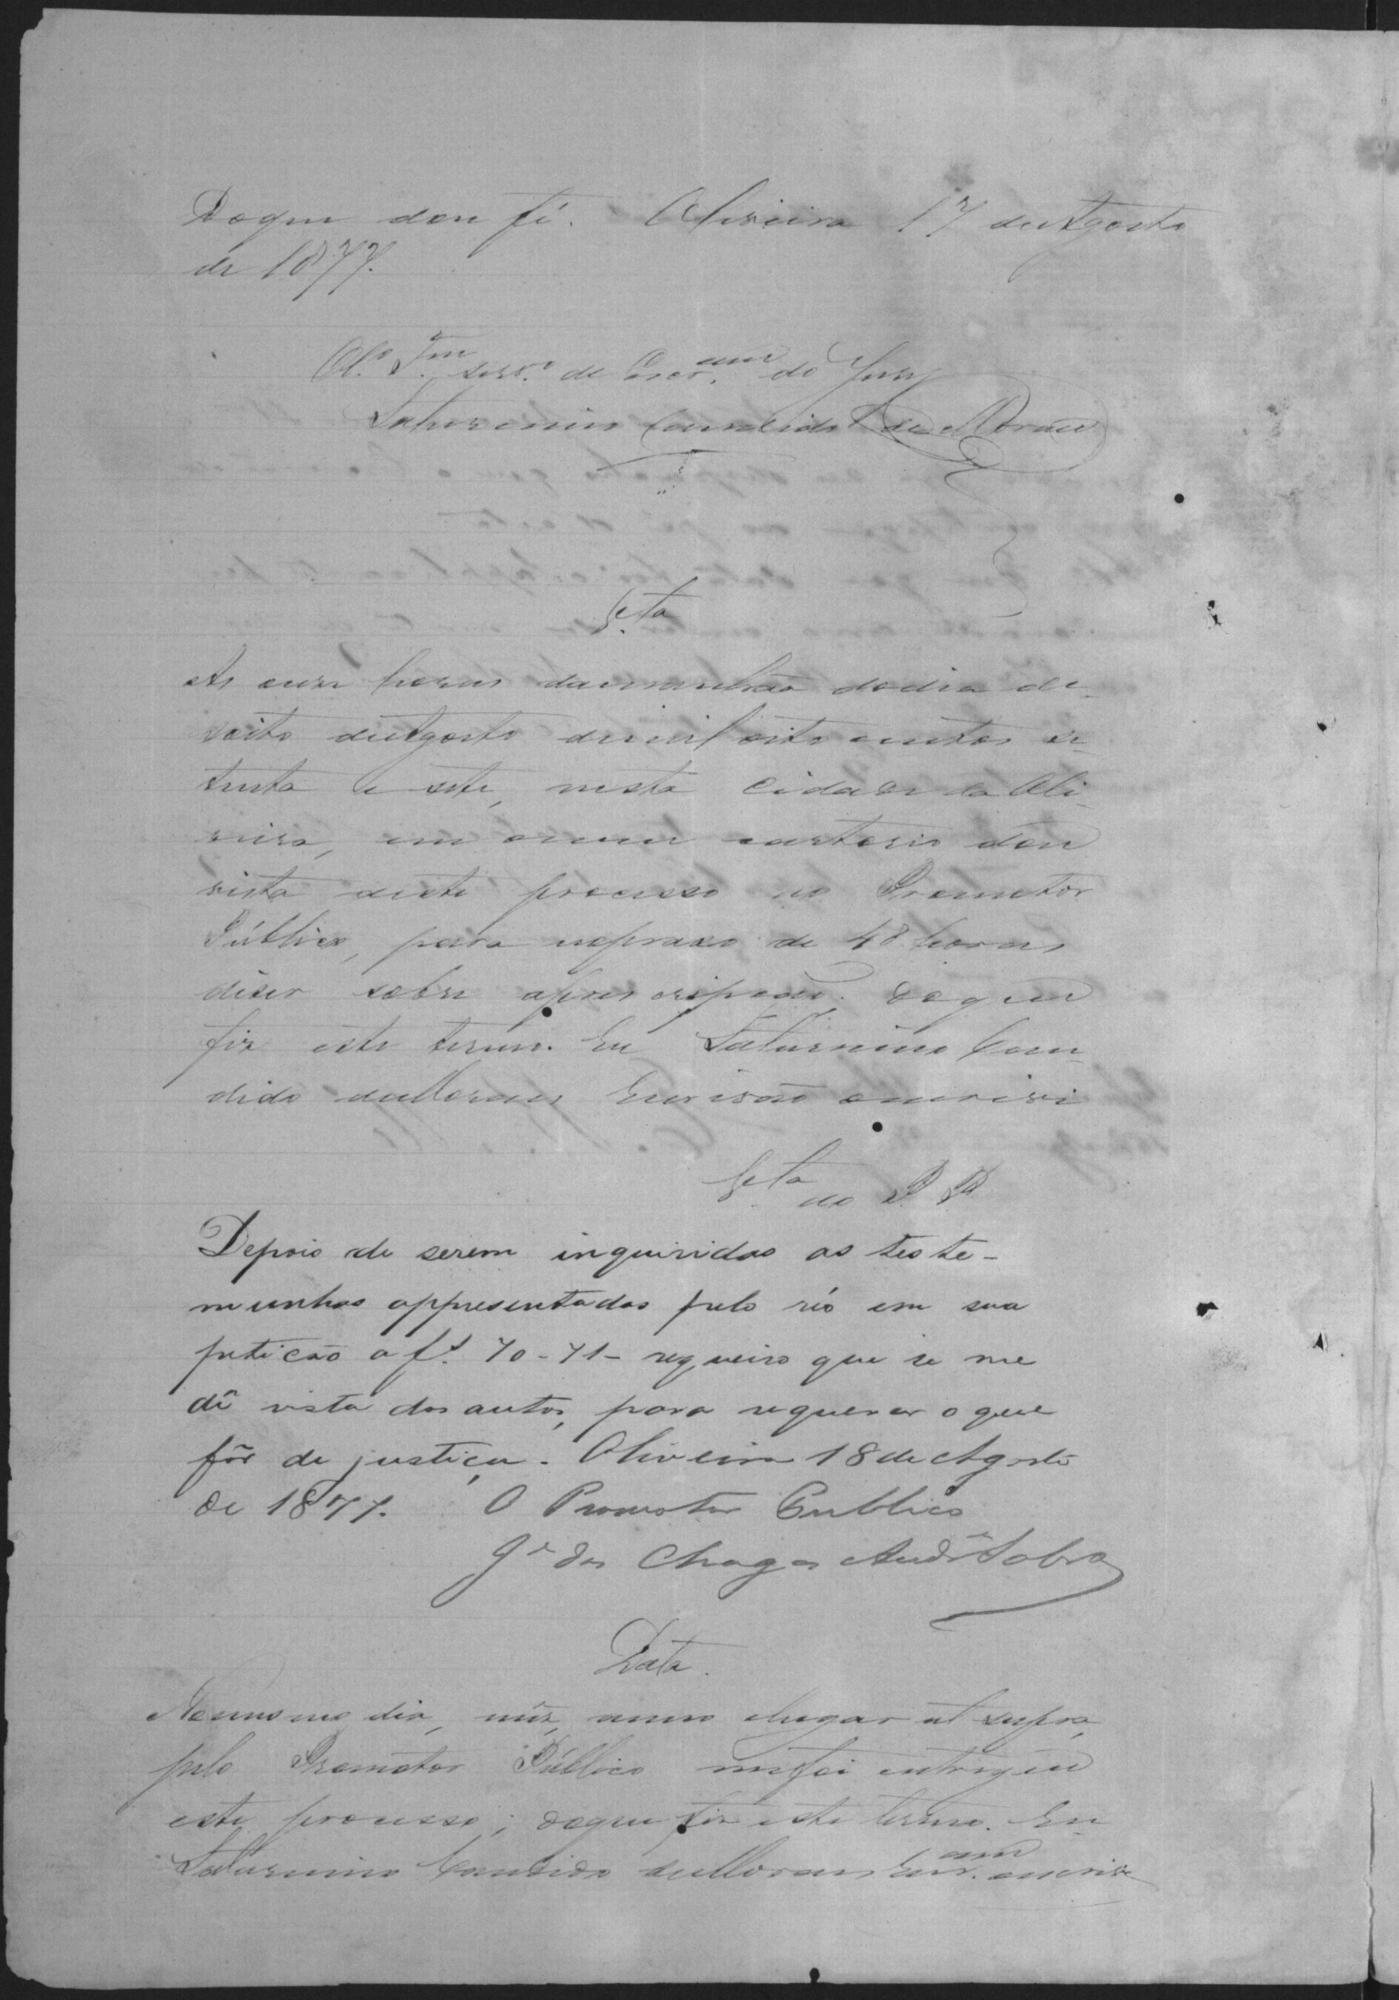 Doque dou fé. Oliveira 17 de Agosto
de 1877.
serv.º de Escr.am do Jury
Saturnino Candido de Moraes
V.ta
As onze horas damanhão dodia de-
soito de Agosto demil oito centos se-
tenta e sete, nesta Cidade da Oli-
veira, em o meu cartorio dou
vista deste processo ao Promotor
Público, para noprazo de 48 horas
diser sobre Doque
fiz este termo. Eu Saturnino Can-
dido deMoraes Escrivão oescrivi
V.ta ao P. P.
Depois de serem inqueridas as teste-
munhas appresentadas pelo réo em sua
petição a f.s 70-71- requeiro que se me
dê vista dos autos, para requerer o que
fôr de justiça. Oliveira 18 de Agosto
de 1877. O Promotor Publico
J.e das Chagas Andr.e Sobr.o
Data.
Nomesmo dia, mês, anno elugar ut supra,
pelo Promotor Público mefoi entregue
este processo; doque fiz este termo. Eu
Saturnino Candido deMoraes Escr.am oescrivi